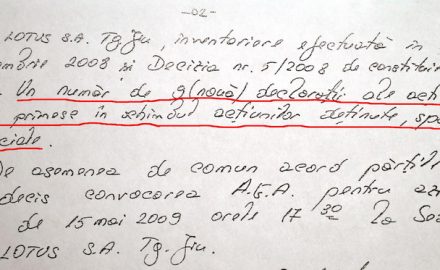 -02-
LOTUS S.A. Tg. Jiu, inventariere efectuată în
embrie 2008 și Decizia nr. 5/2008 de constituire
. Un număr de 9 (nouă) declarații ale acți
primesc în schimbul acțiunilor deținute, spa
ciale.
De asemenea de comun acord părțile
decis convocarea A.G.A. pentru
de 15 mai 2009 orele 17 30 la
LOTUS S.A. Tg. Jiu.